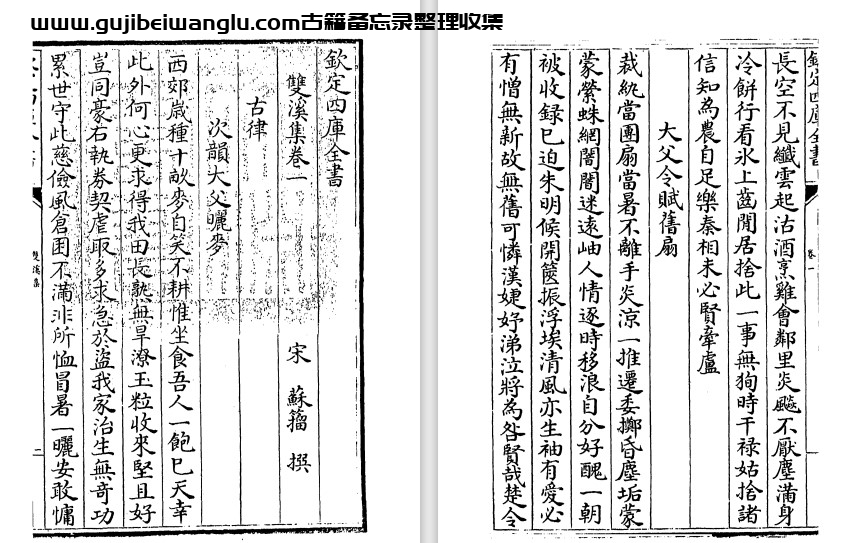 www.gujibeiwanglu.com古籍备忘录整理收集
欽定四庫全書
雙溪集卷一
宋 蘇籀 撰
古律
次韻大父曬麥
西郊歲種十畝麥自笑不耕惟坐食吾人一飽已天幸
此外何心更求得我田長熟無旱潦玉粒收來堅且好
豈同豪右執券契虐取多求急於盜我家治生無奇功
累世守此慈儉風倉囷不滿非所恤冒暑一曬安敢慵
雙溪集
欽定四庫全書
卷一
長空不見纖雲起沽酒烹雞會鄰里炎飈不厭塵滿身
冷餅行看氷上齒閒居捨此一事無狥時干祿姑捨諸
信知為農自足樂秦相未必賢牽盧
大父令賦舊扇
裁紈當團扇當暑不離手炎涼一推遷委擲昏塵垢蒙
蒙縈蛛網闇闇迷遠岫人情逐時移浪自分好醜一朝
被收録已迫朱明候開篋振浮埃清風亦生袖有愛必
有憎無新故無舊可憐漢婕妤涕泣將為咎賢哉楚令